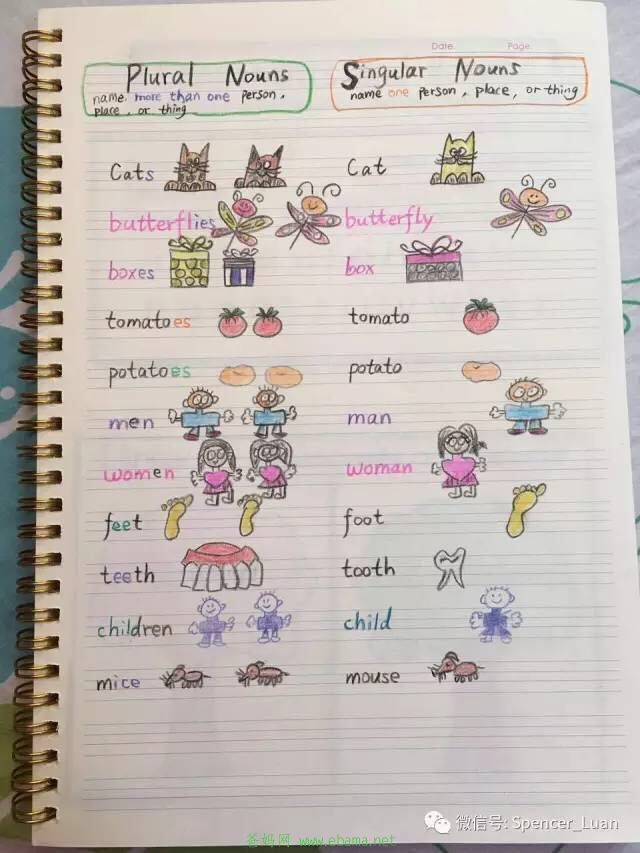 Date. Page.
Plural Nouns
name more than one person,
place, or thing
Singular Nouns
name one person, place, or thing
Cats Cat
butterflies butterfly
boxes box
tomatoes tomato
potatoes potato
men man
women woman
feet foot
teeth tooth
children child
mice mouse
微信号: Spencer_Luan
爸妈网 www.ebama.net